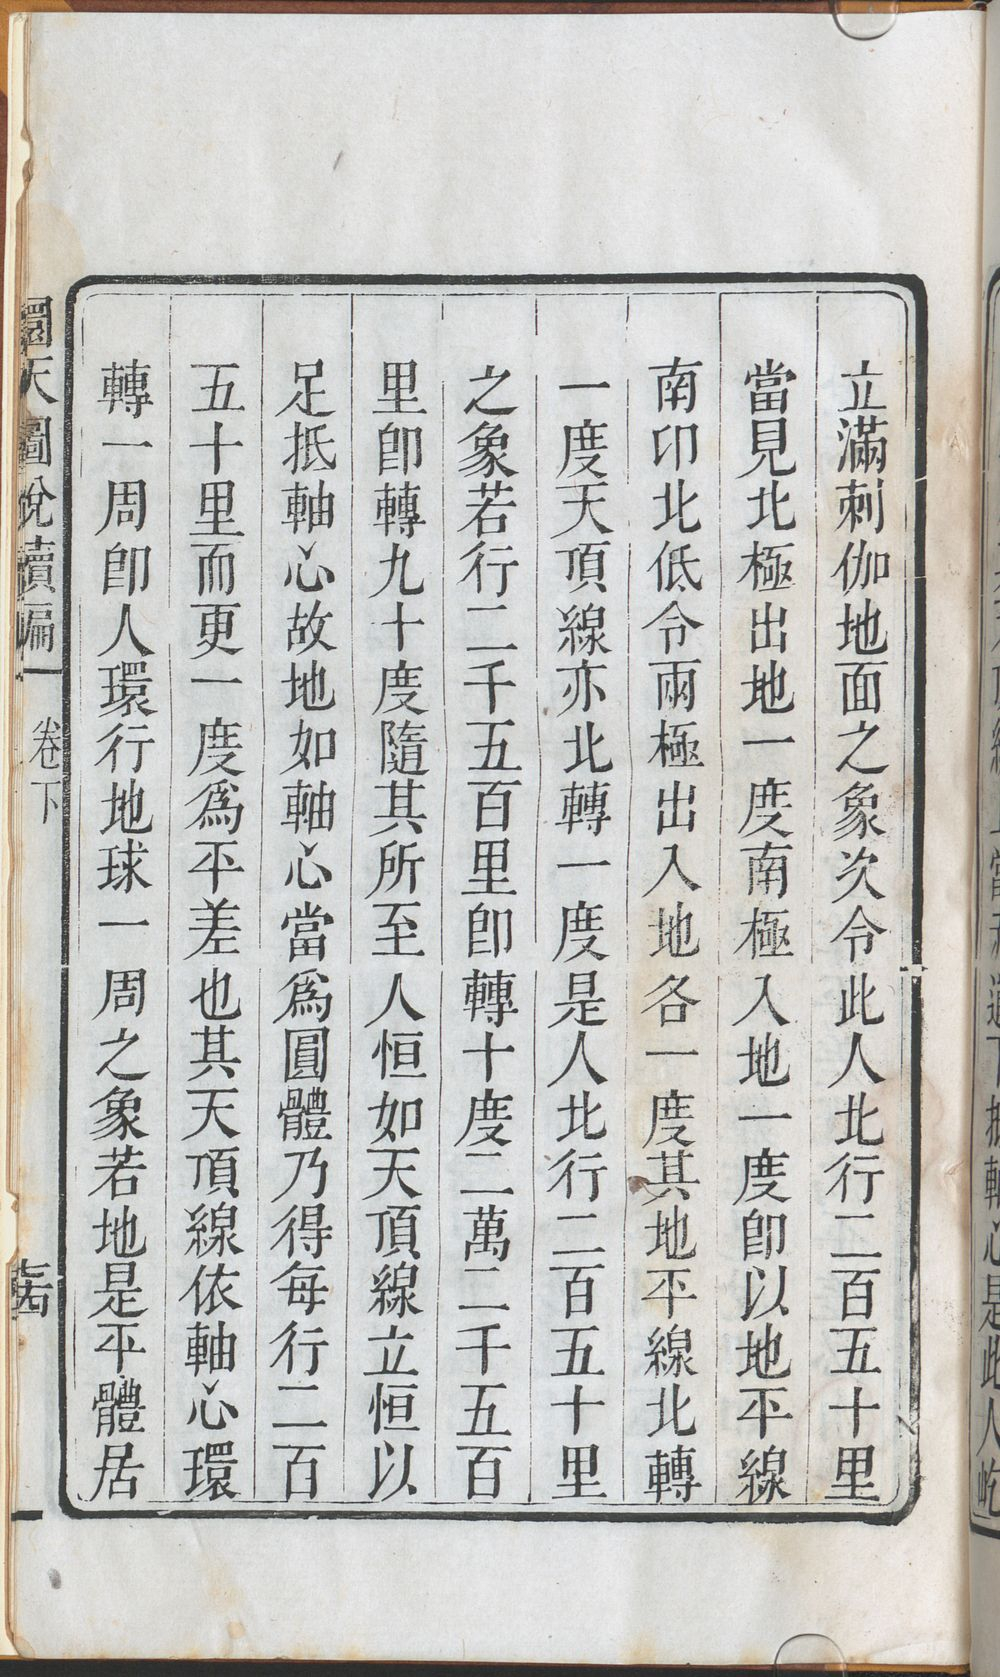 立滿剌伽地面之象次令此人北行二百五十里
當見北極出地一度南極入地一度卽以地平線
南卬北低令兩極出入地各一度其地平線北轉
一度天頂線亦北轉一度是人北行二百五十里
之象若行二千五百里卽轉十度二萬二千五百
里卽轉九十度隨其所至人恒如天頂線立恒以
足抵軸心故地如軸心當爲圓體乃得每行二百
五十里而更一度爲平差也其天頂線依軸心環
轉一周卽人環行地球一周之象若地是平體居
圜天圖說續編
卷下